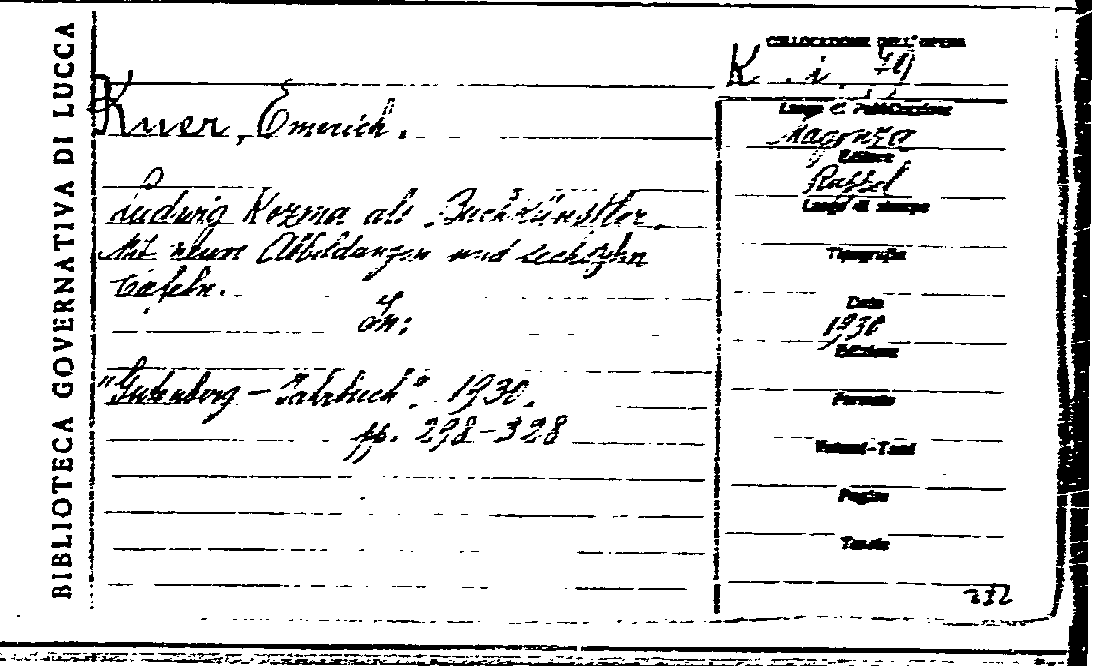 BIBLIOTECA GOVERNATIVA DI LUCCA
COLLOCAZIONE DELL'OPERA
K. i. 79
Kner, Emerich.
Ludwig Kozma als Buchkünstler.
Mit neun Abbildungen und sechzehn
tafeln.
In:
"Gutenberg-Jahrbuch". 1930.
pp. 298-328
Luogo di Pubblicazione
Magonza
Editore
Ruppel
Luogo di stampa
Tipografia
Data
1930
Edizione
Formato
Volumi-Tomi
Pagine
Tavole
232